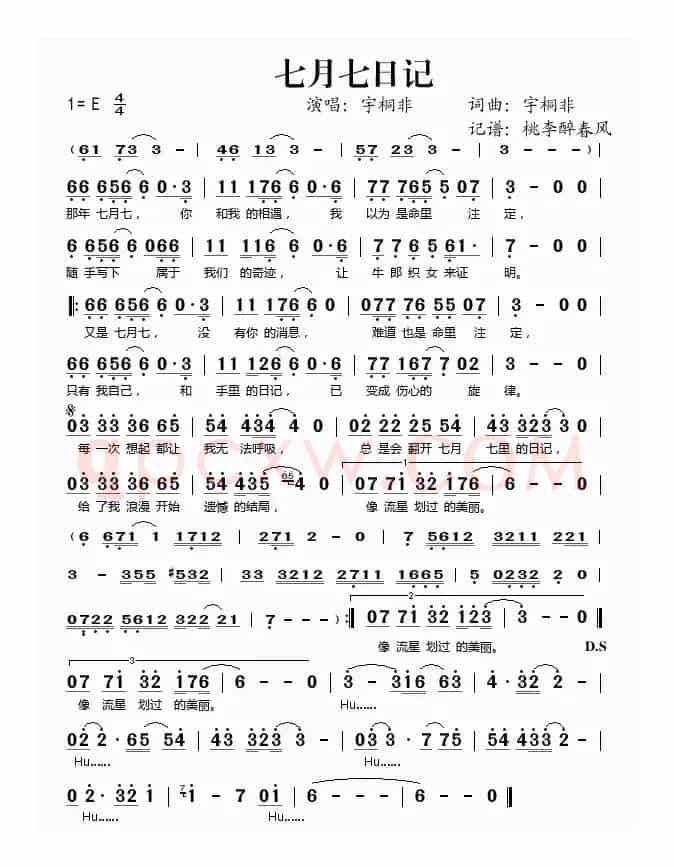 七月七日记
1= E 4/4 演唱：宇桐非 词曲：宇桐非
记谱：桃李醉春风
(61 73 3 - | 46 13 3 - | 57 23 3 - | 3 - - - )|
66 656 6 0·3 | 11 176 6 0·6 | 77 765 5 07 | 3 - 0 0 |
那年 七月七， 你 和我 的相遇， 我 以为 是命里 注 定，
6 656 6 066 | 11 116 6 0·6 | 7 76 5 61· | 7 - 0 0 |
随 手写下 属于 我们 的奇迹， 让 牛 郎织 女 来证 明。
‖: 66 656 6 0·3 | 11 176 6 0 | 077 76 55 07 | 3 - - 0 |
又是 七月七， 没 有你 的消息， 难道 也是 命里 注 定，
66 656 6 0·3 | 11 126 6 0·6 | 77 167 7 02 | 3 - - 0 |
只有 我自己， 和 手里 的日记， 已 变成 伤心的 旋 律。
03 33 36 65 | 54 434 4 0 | 02 22 25 54 | 43 323 3 0 |
每 一次 想起 都让 我无 法呼吸， 总 是会 翻开 七月 七里 的日记，
03 33 36 65 | 54 435 65 4 0 | 07 71 32 176 | 6 - - 0 |
给 了我 浪漫 开始 遗憾 的结局， 像 流星 划过 的美丽。
(6 671 1 1712 | 271 2 - 0 | 7 5612 3211 221 |
3 - 355 #532 | 33 3212 2711 1665 | 5 0232 2 - |
0722 5612 322 21 | 7 - - - ):‖ 07 71 32 123 | 3 - - 0 ‖
像 流星 划过 的美丽。 D.S
07 71 32 176 | 6 - - 0 | 3 - 316 63 | 4 - - 32 |
像 流星 划过 的美丽。 Hu......
02 2· 65 54 | 43 323 3 - | 03 3· 7 75 | 54 433 2 - |
Hu...... Hu......
0 2· 32 1 | 1 - 7 01 | 6 - - - | 6 - - 0 ‖
Hu...... Hu......
qpcxw.com